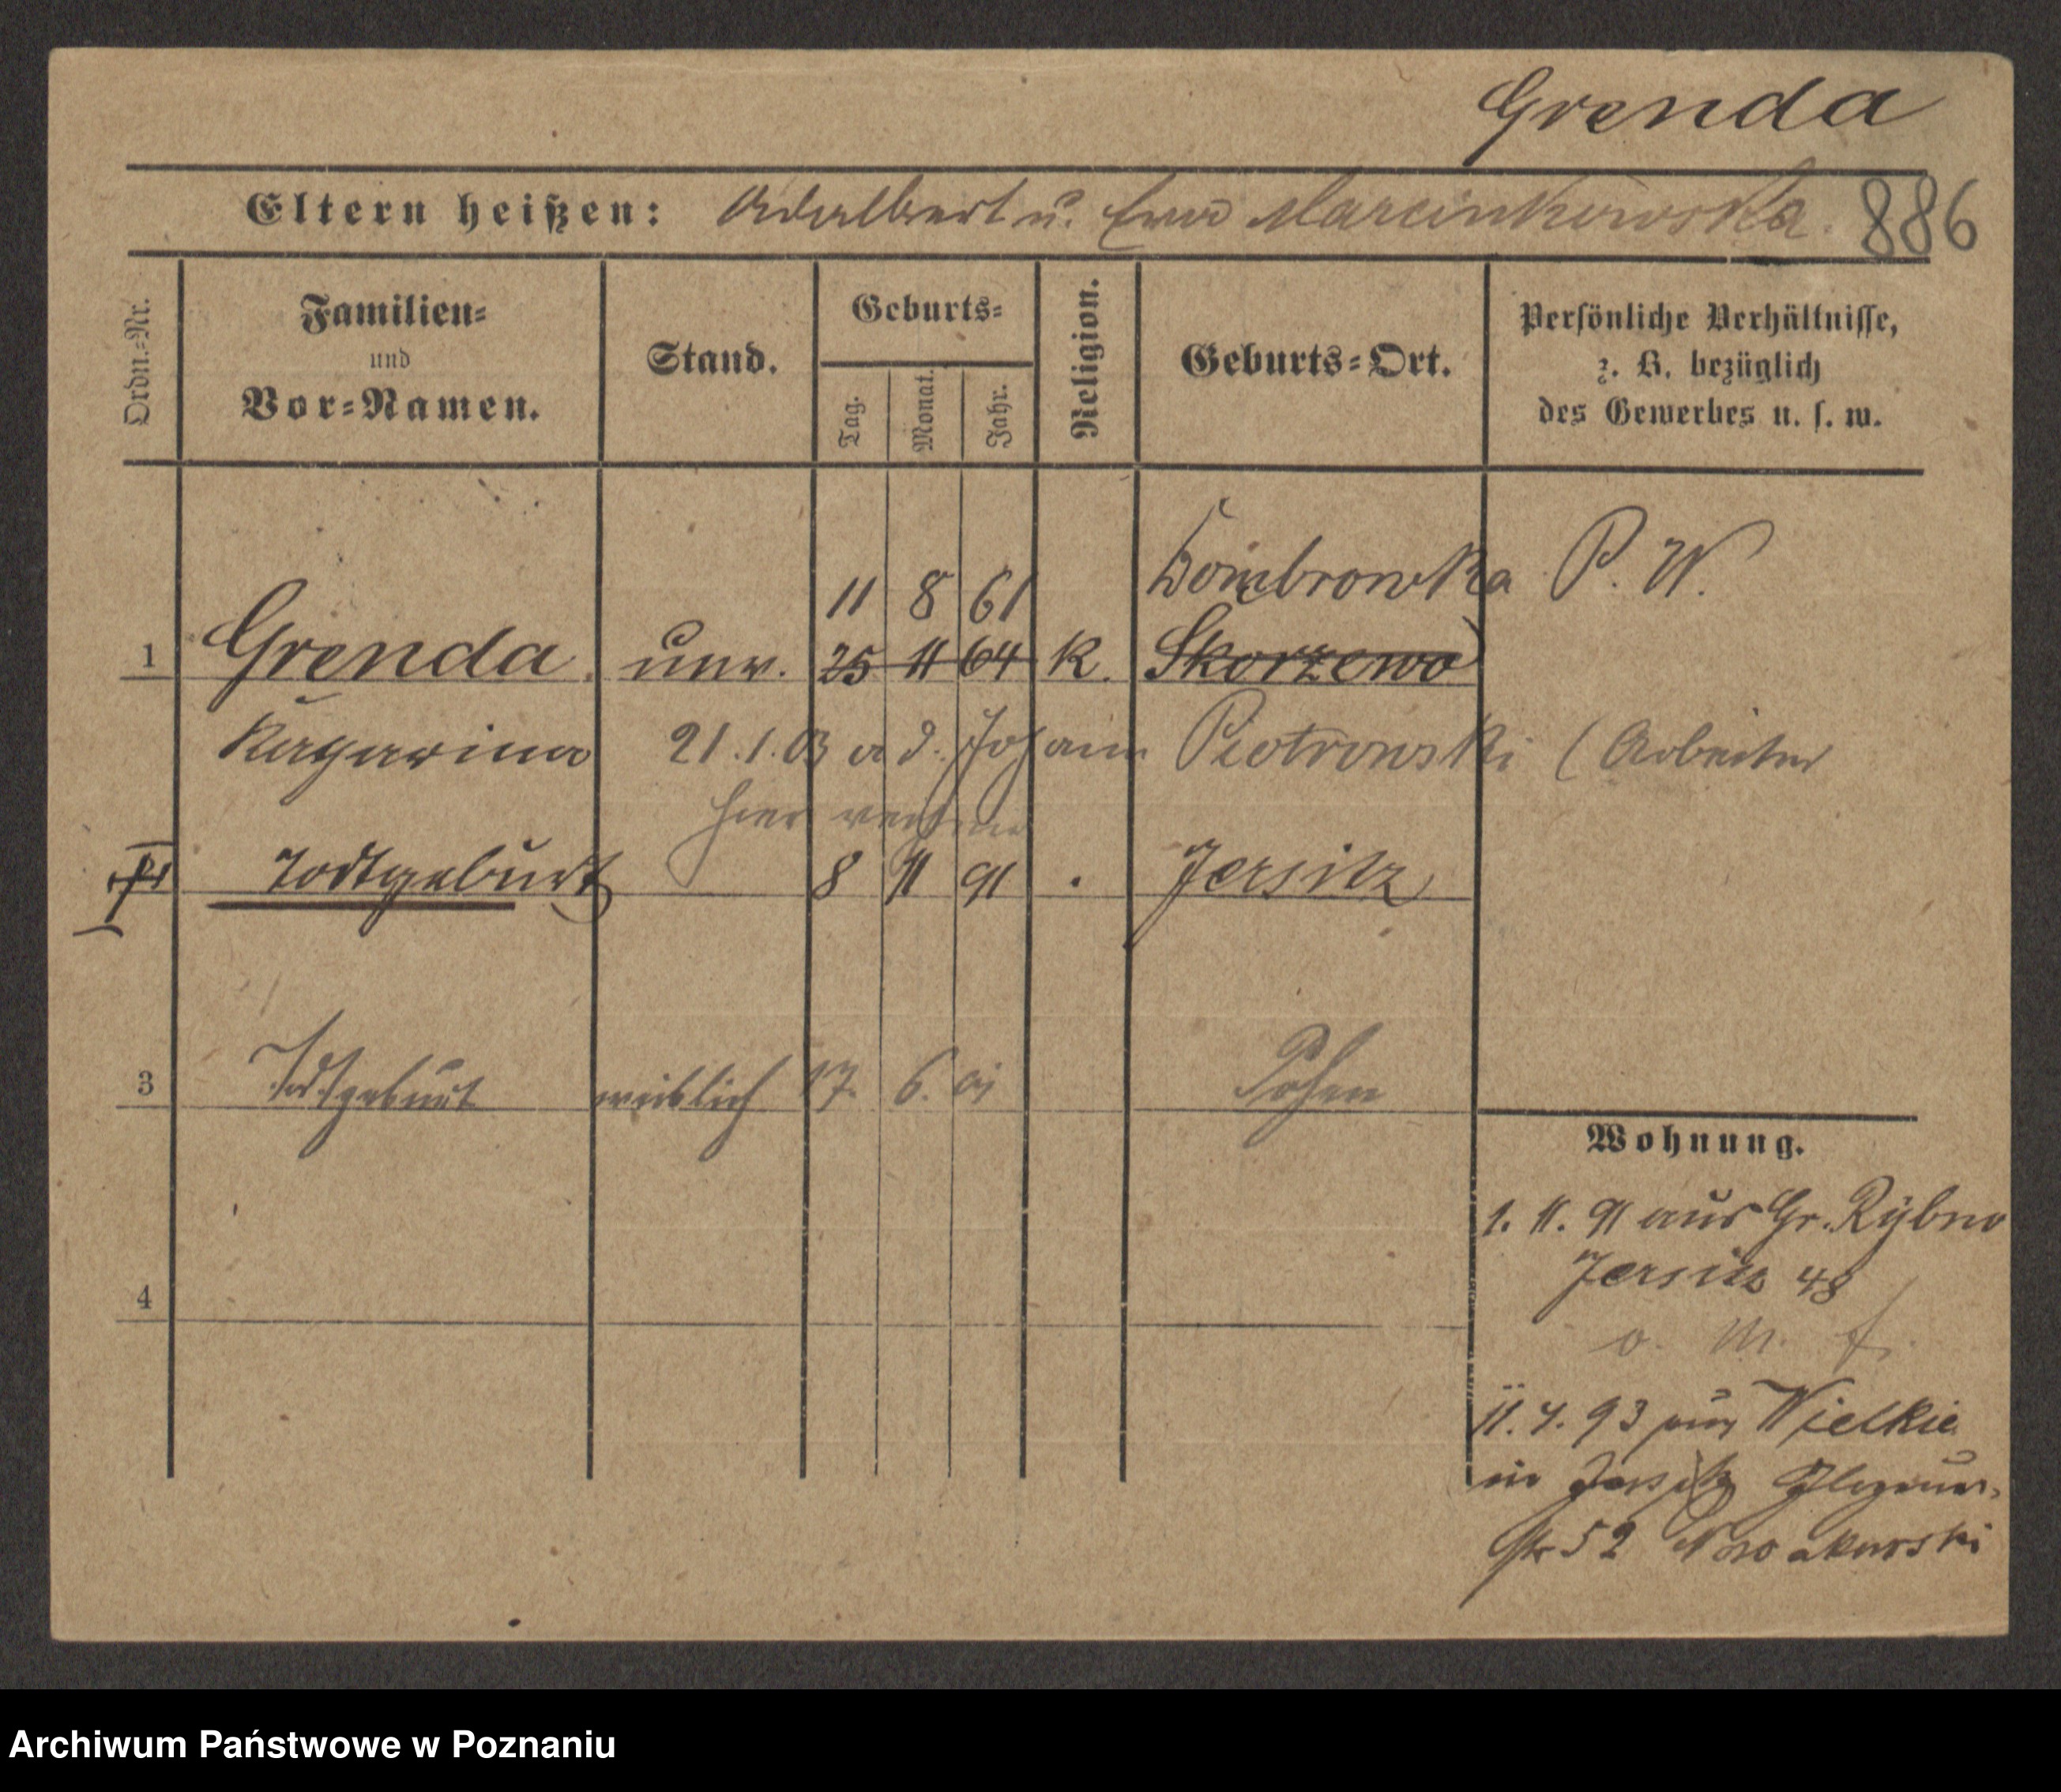 Grenda
Eltern heißen: Adalbert u. Eva Marcinkowska. 886
Ordn.-Nr.
Familien-
und
Vor-Namen.
Stand.
Geburts-
Tag.
Monat.
Jahr.
Religion.
Geburts-Ort.
Persönliche Verhältnisse,
z. B. bezüglich
des Gewerbes u. s. w.
11 8 61 Dombrowka P. W.
1 Grenda unv. 25 11 64 K. Skorzewo
Kagarina 21.1.03 a d. Johann Piotrowski (Arbeiter
hier
Todtgeburt 8 11 91 Jersitz
3 Todtgeburt weiblich 17. 6. Posen
Wohnung.
1. 11. 91 aus Gr. Rybno
4 Jersitz 48
o. M. f.
11. 4. 93 Wielkie
in Jersitz Glogauer-
str 52 Nowakowski
Archiwum Państwowe w Poznaniu